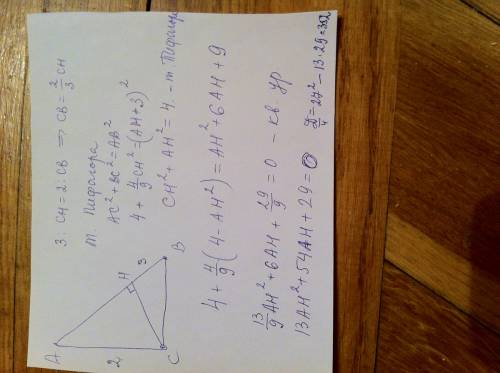 3 : CH = 2 : CB ⇒ CB = 2/3 CH
т. Пифагора
AC² + BC² = AB²
4 + 4/9 CH² = (AH+3)²
CH² + AH² = 4. – т Пифагора
A
H
3
B
2
C
4 + 4/9 (4 − AH²) = AH² + 6AH + 9
13/9 AH² + 6AH + 29/9 = 0 – кв. ур
13AH² + 54AH + 29 = 0
D/4 = 27² − 13·29 =